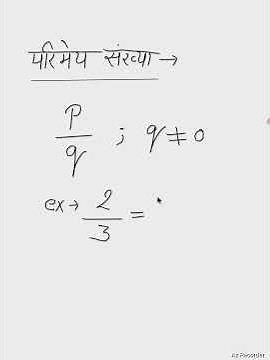 परिमेय संख्या →
p/q ; q ≠ 0
ex → 2/3 =
Az Recorder